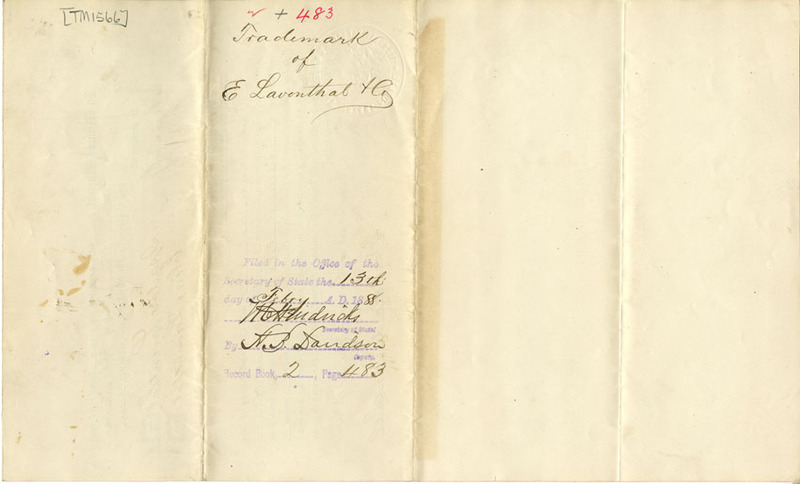 [TM1566]
2 + 483
Trademark
of
E Laventhal & Co
Filed in the Office of the
Secretary of State the 13th
day of Feby A.D. 1888.
Wm C Hendricks
Secretary of State
By A. B. Davidson
Deputy.
Record Book, 2, Page 483